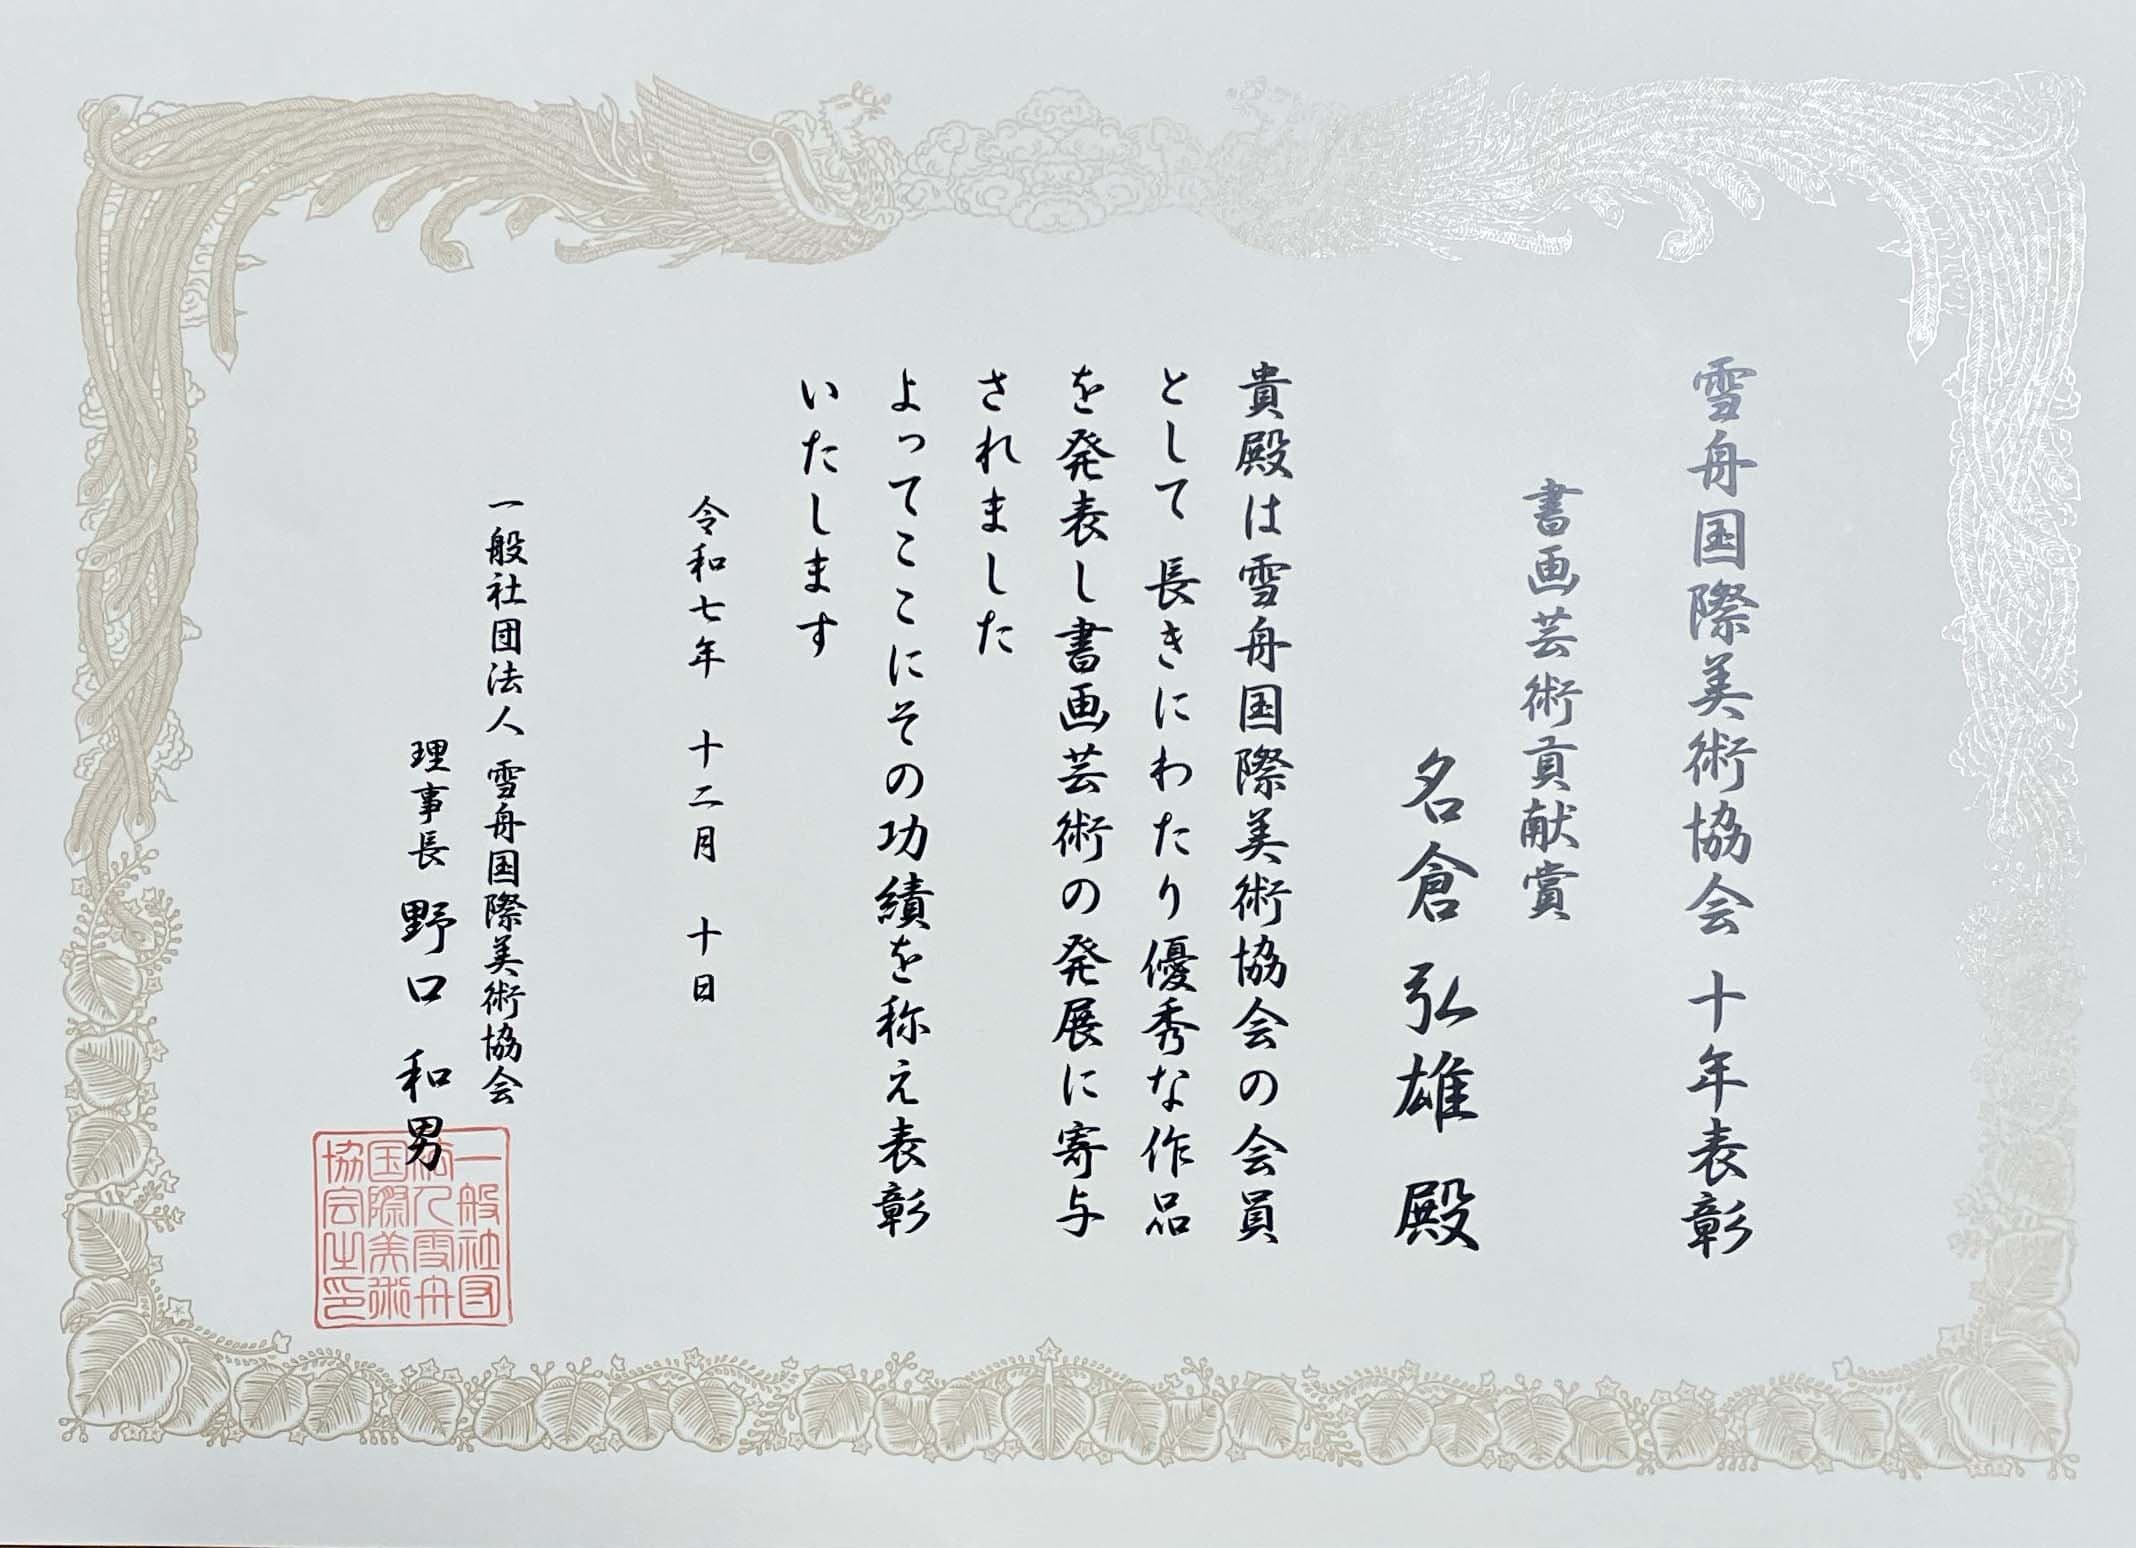 雪舟国際美術協会 十年表彰
書画芸術貢献賞
名倉 弘雄 殿
貴殿は雪舟国際美術協会の会員
として 長きにわたり優秀な作品
を発表し書画芸術の発展に寄与
されました
よってここにその功績を称え表彰
いたします
令和七年 十二月 十日
一般社団法人 雪舟国際美術協会
理事長 野口 和男
一般社団
法人雪舟
国際美術
協会之印